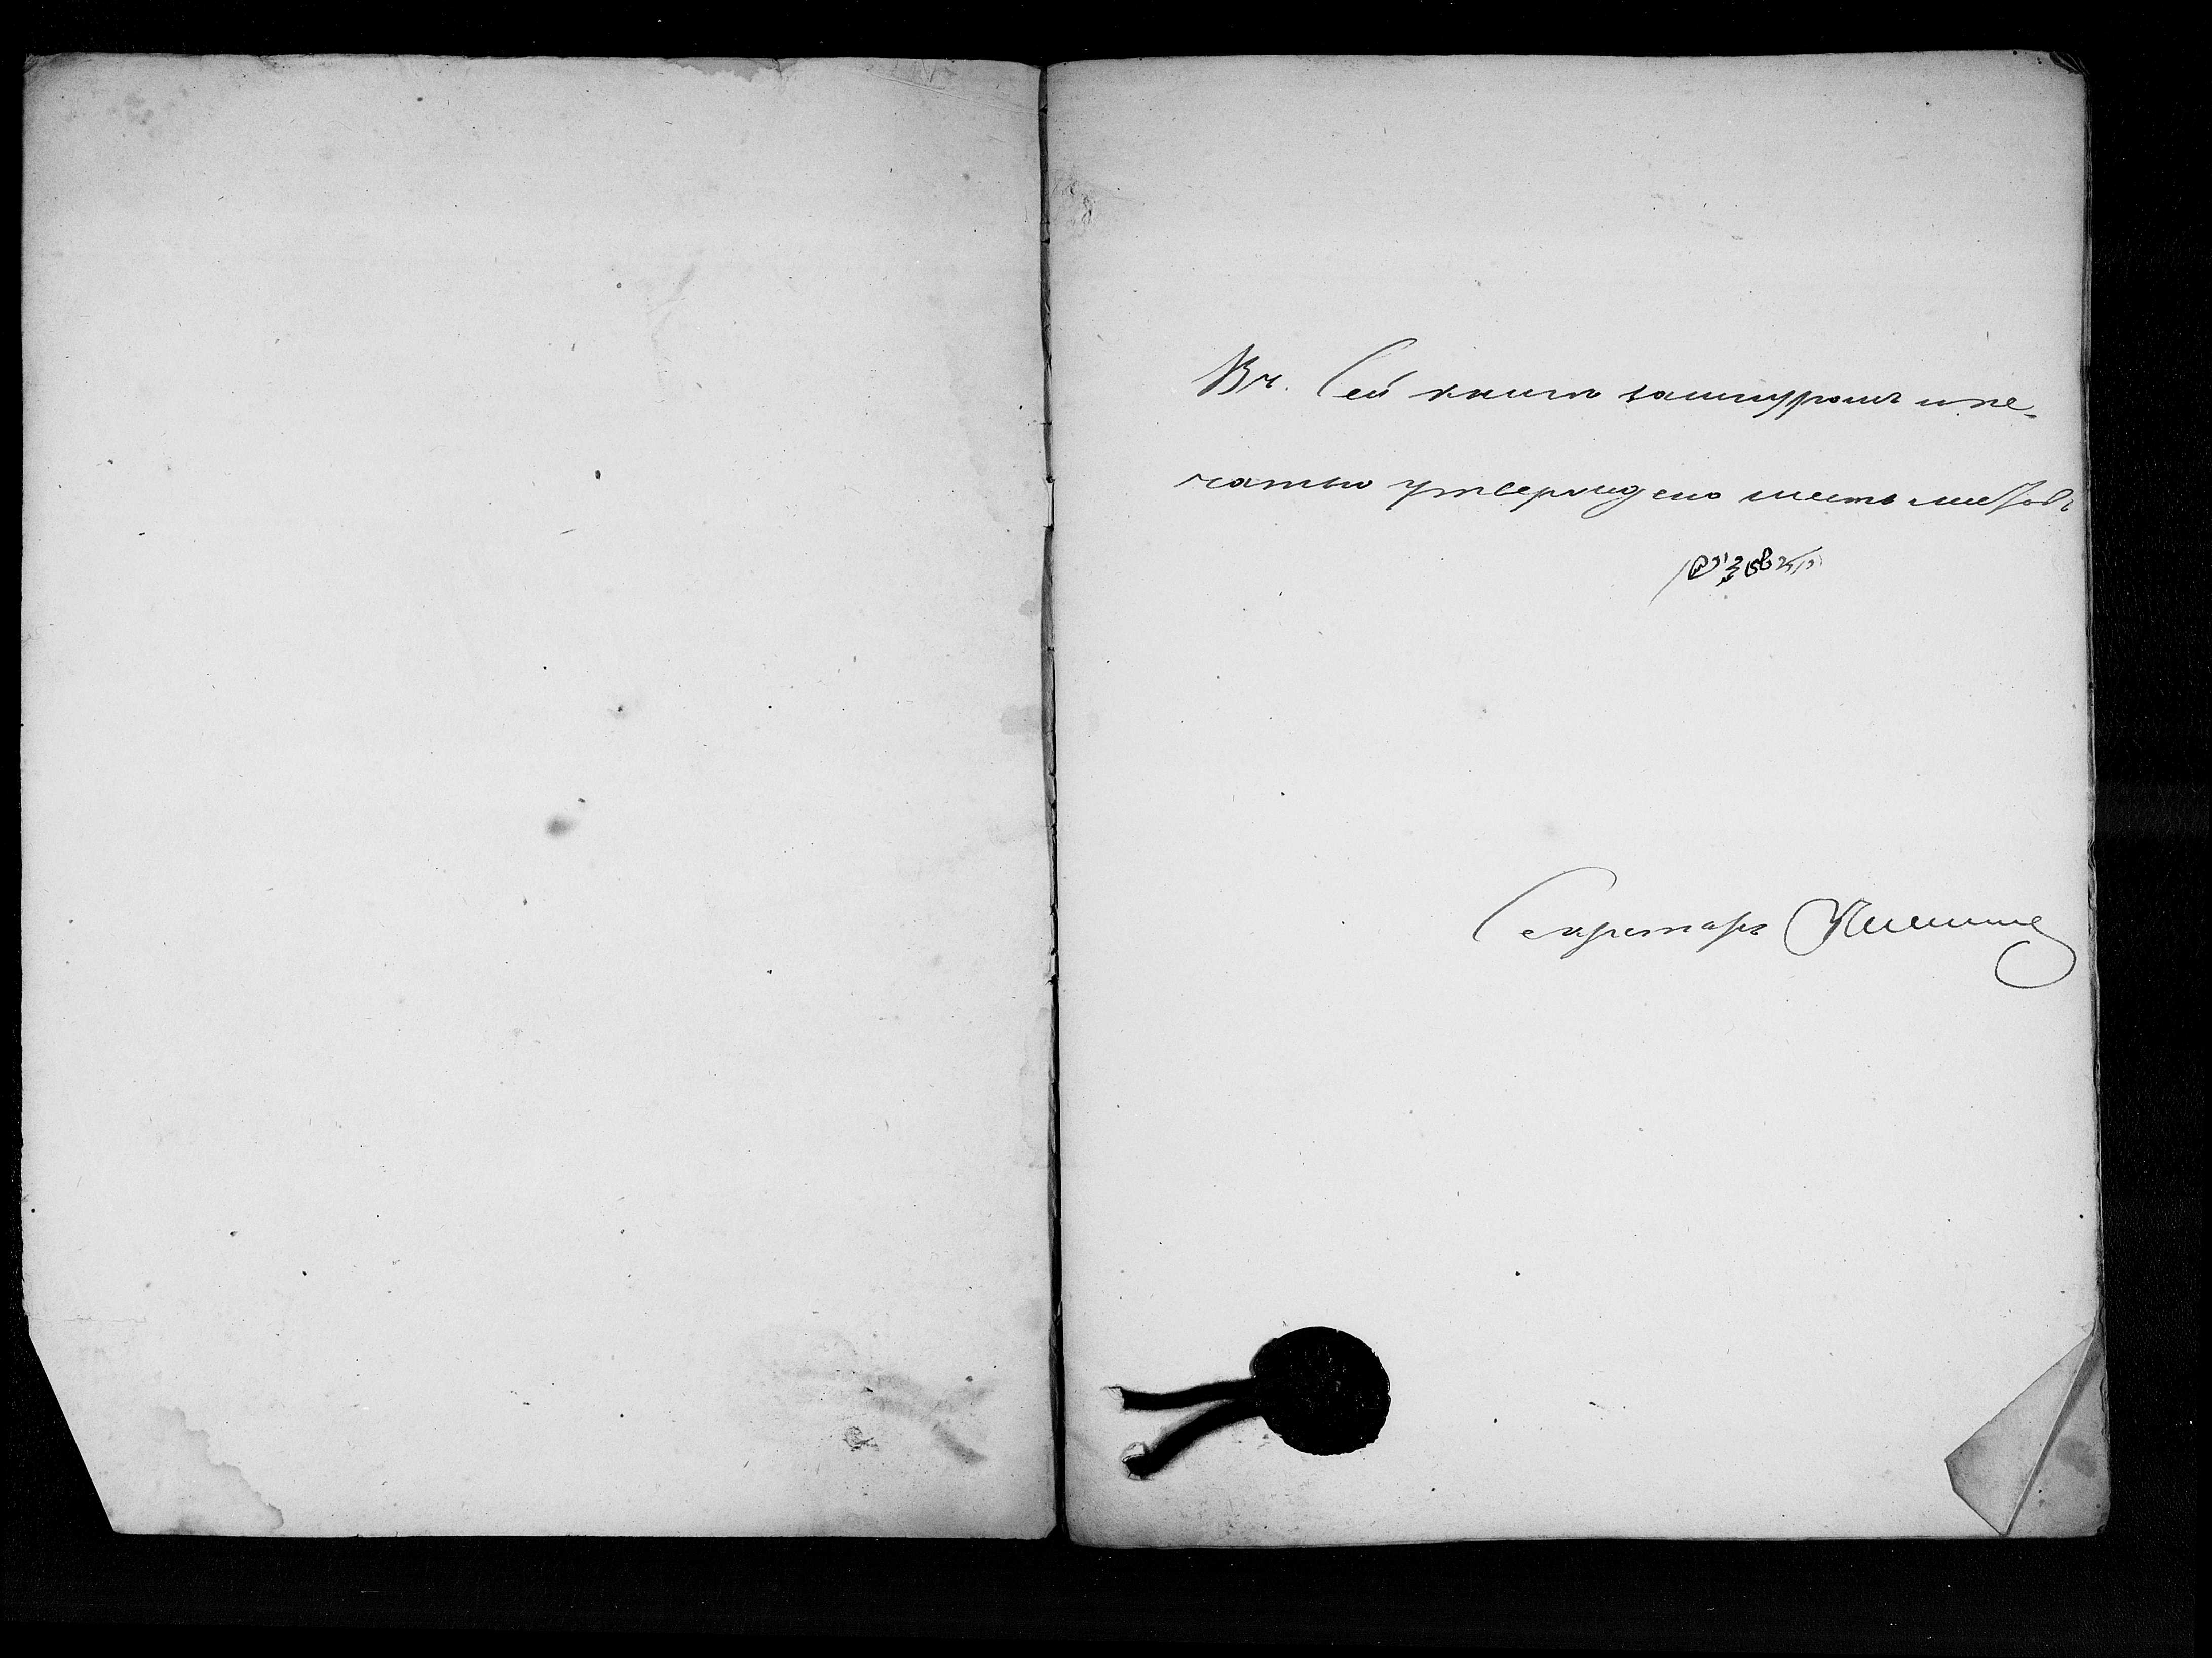 Въ Сей книге зашнуромъ и пе-
чатью утверждено шесть листовъ
Секретарь